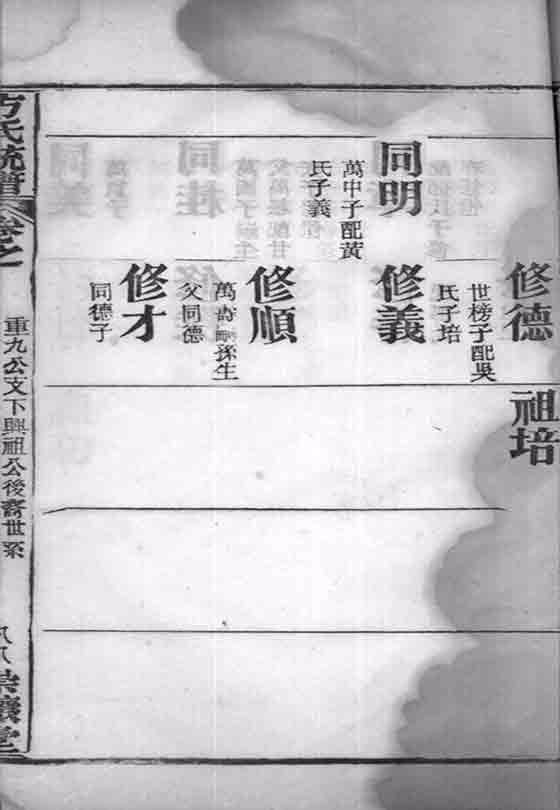 修德
世榜子配吳
氏子培
祖培
同明
萬中子配黃
氏子義
修義
修順
萬嵩嗣孫生
父同德
修才
同德子
方氏統譜
卷之一
重九公支下興祖公後裔世系